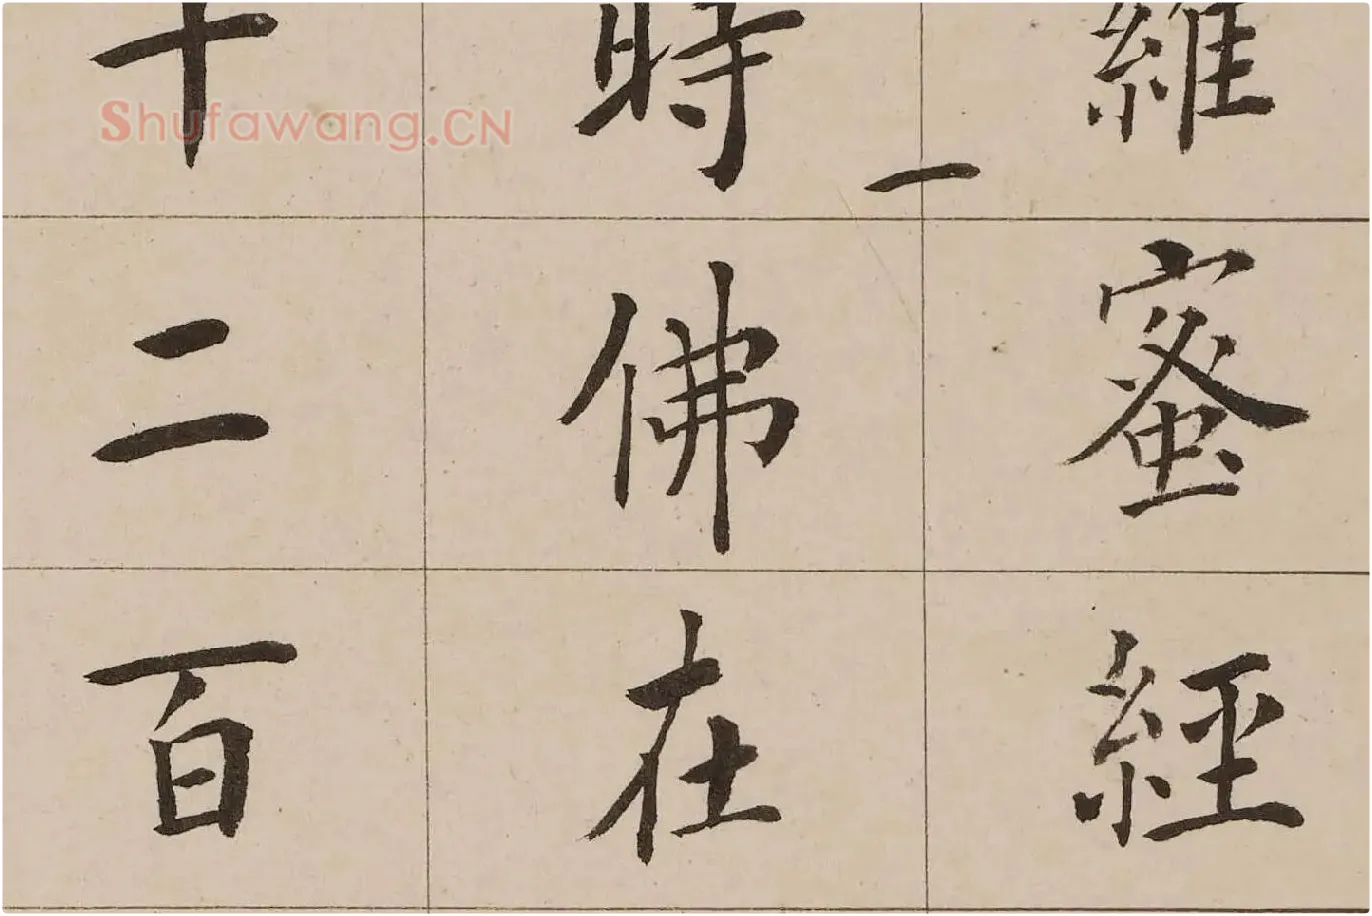 羅蜜經
一
時佛在
十二百
Shufawang.CN